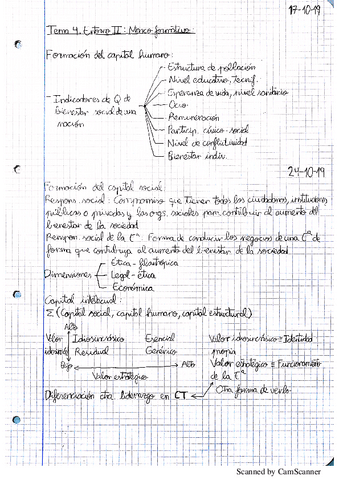 17-10-19
Tema 4. Entorno II: Marco formativo
Formación del capital humano:
- Indicadores de Q de bienestar social de una nación
Estructura de población
Nivel educativo, tecnif.
Esperanza de vida, nivel sanitario
Ocio
Remuneración
Particip. cívico-social
Nivel de conflictividad
Bienestar indiv.
24-10-19
Formación del capital social:
Respons. social: Compromiso que tienen todos los ciudadanos, instituciones
públicas o privadas y las orgs. sociales para contribuir al aumento del
bienestar de la sociedad
Respon. social de la Cª: Forma de conducir los negocios de una Cª de
forma que contribuya al aumento del bienestar de la sociedad
Dimensiones
Ética-filantrópica
Legal-ética
Económica
Capital intelectual:
Σ (Capital social, capital humano, capital estructural)
Alto
Valor Idiosincrásico Esencial
Residual Genérico
Bajo Alto
Valor estratégico
Valor idiosincrásico = Identidad
propia
Valor estratégico = Funcionamiento
de la Cª
Diferenciación otra liderazgo en CT
Otra forma de verlo